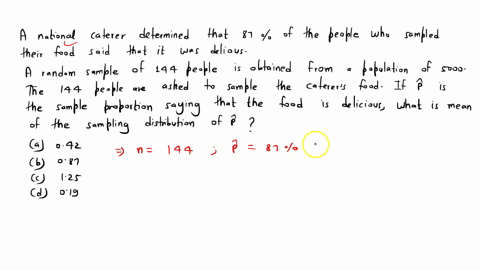 A national caterer determined that 87 % of the people who sampled
their food said that it was delious.
A random sample of 144 people is obtained from a population of 5000.
The 144 people are asked to sample the caterer's food. If p̂ is
the sample proportion saying that the food is delicious, what is mean
of the sampling distribution of p̂ ?
(a) 0.42
(b) 0.87
(c) 1.25
(d) 0.19
⇒ n = 144 ; p̂ = 87 %